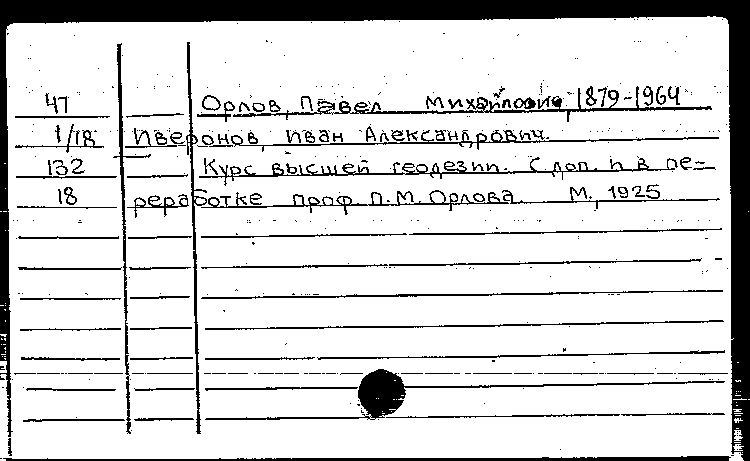 47 Орлов, Павел Михайлович, 1879-1964
1/18 Иверонов, Иван Александрович.
132 Курс высшей геодезии. С доп. и в пе-
18 реработке проф. П.М. Орлова. М., 1925